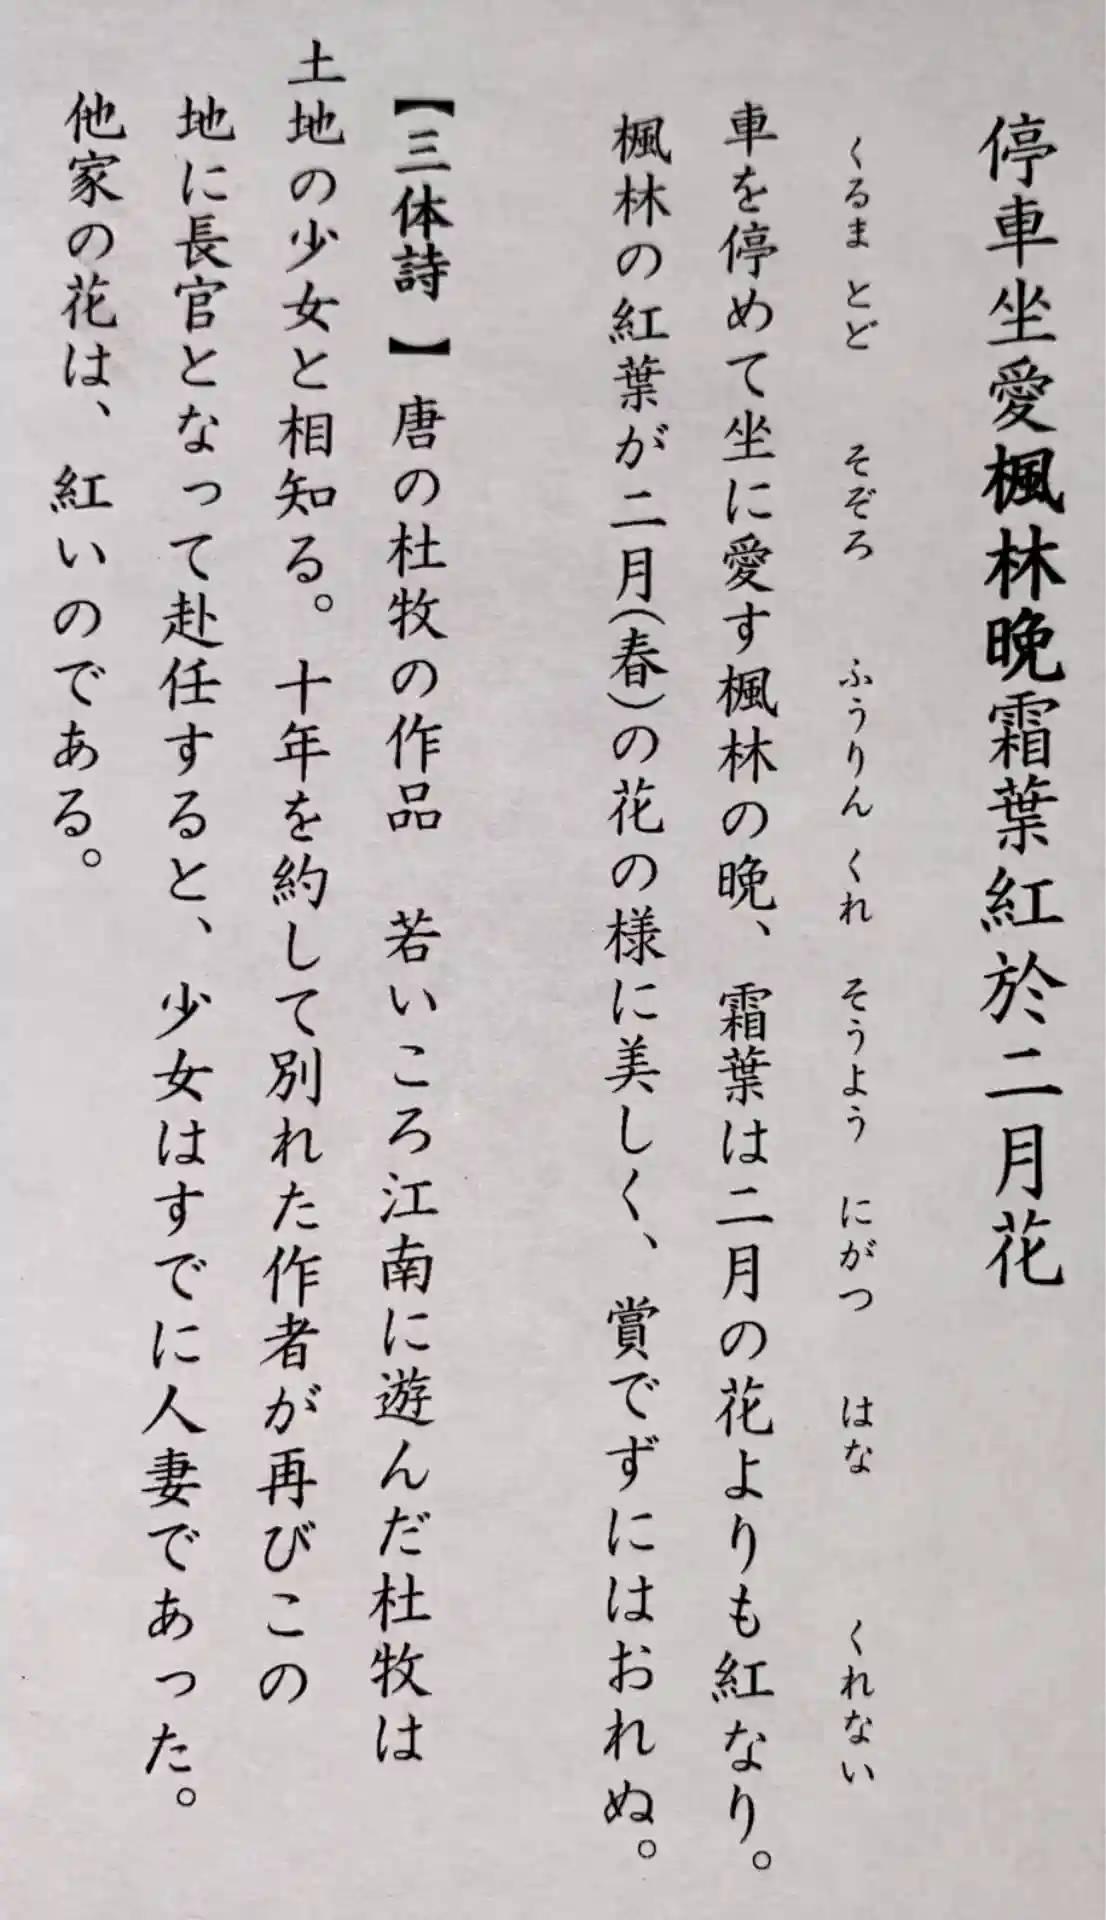 停車坐愛楓林晩霜葉紅於二月花
くるま とど そぞろ ふうりん くれ そうよう にがつ はな くれない
車を停めて坐に愛す楓林の晩、霜葉は二月の花よりも紅なり。
楓林の紅葉が二月(春)の花の様に美しく、賞でずにはおれぬ。
【三体詩 】唐の杜牧の作品 若いころ江南に遊んだ杜牧は
土地の少女と相知る。十年を約して別れた作者が再びこの
地に長官となって赴任すると、少女はすでに人妻であった。
他家の花は、紅いのである。